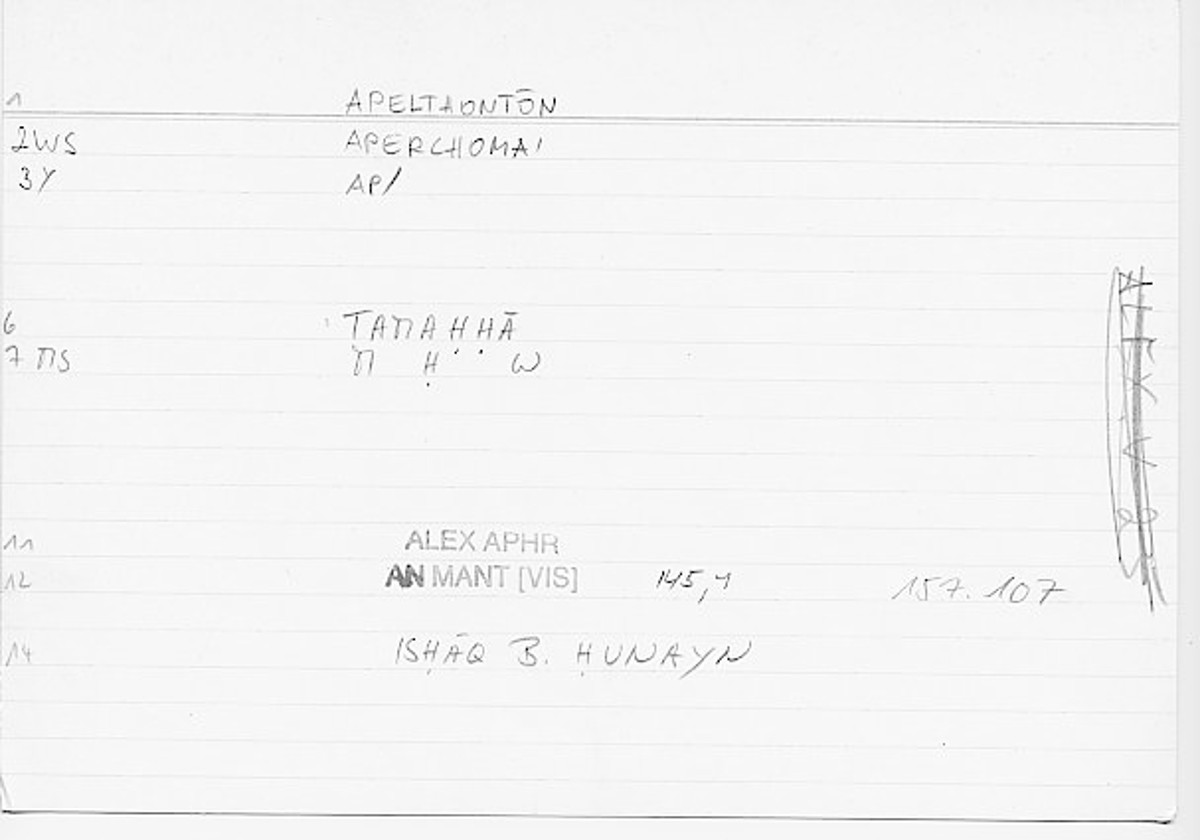 1 APELTHONTŌN
2WS APERCHOMAI
3Y AP/
6 TAMAḤḤĀ
7 MS M Ḥ W
11 ALEX APHR
12 AN MANT [VIS] 145,1 157.107
14 ISḤĀQ B. ḤUNAYN